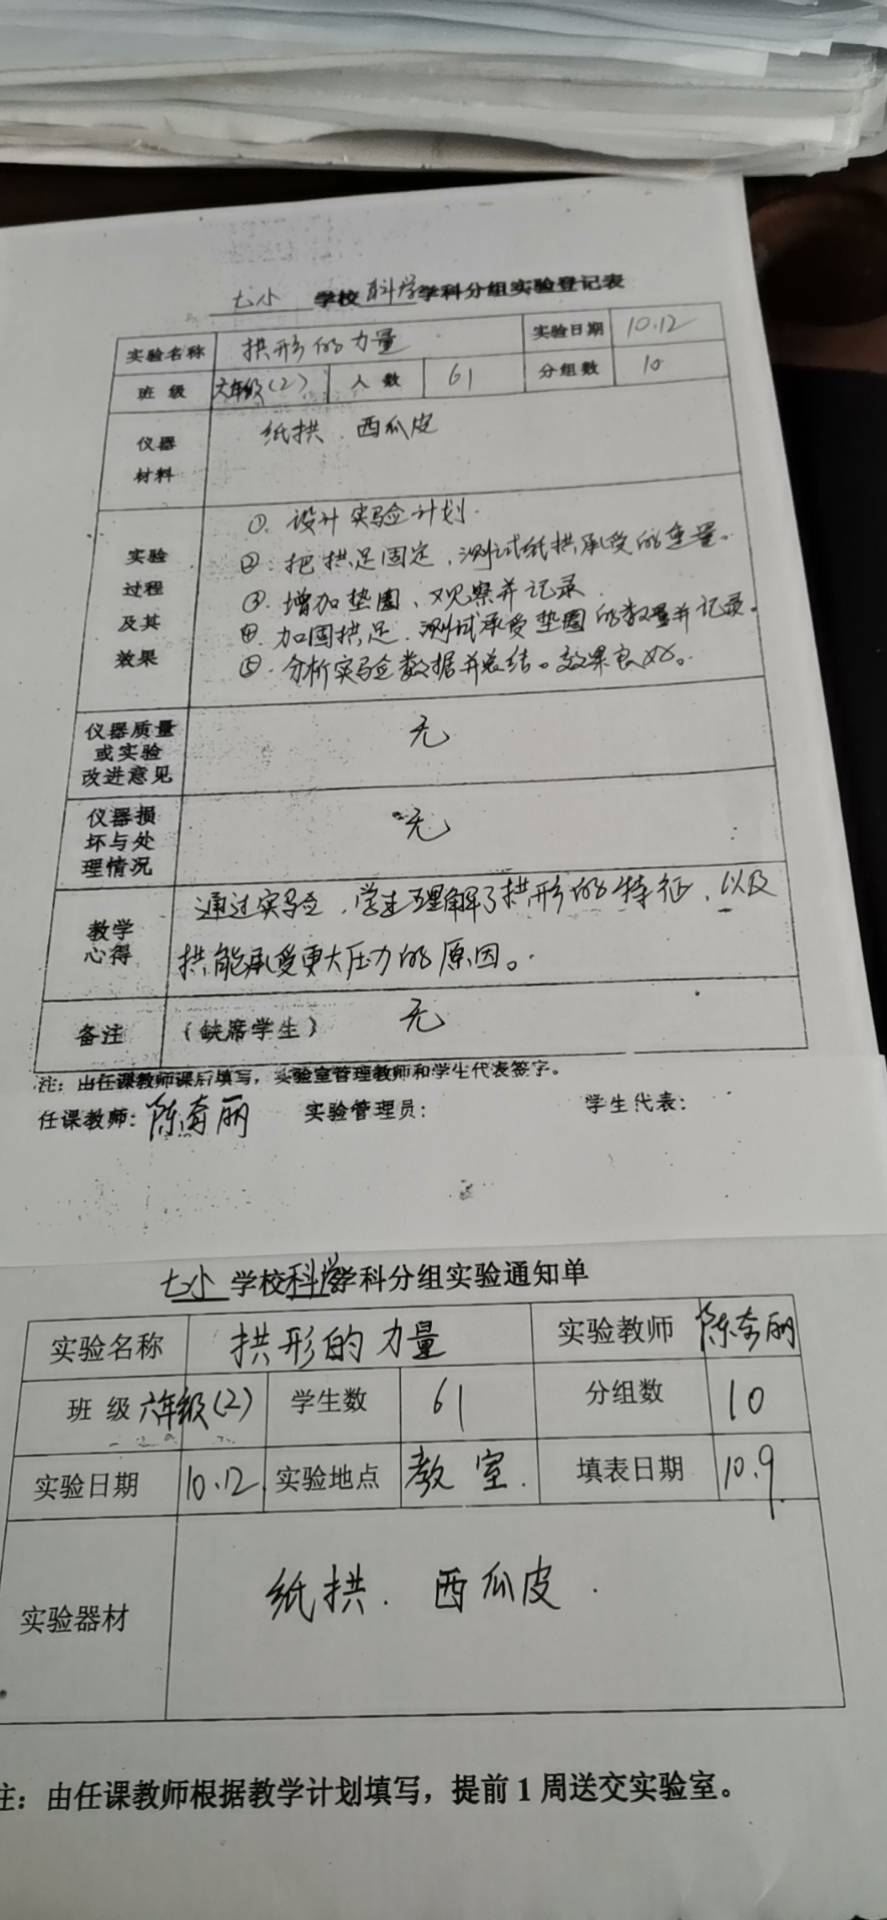 七小 学校 科学 学科分组实验登记表
实验名称 拱形的力量 实验日期 10.12
班级 六年级(2) 人数 61 分组数 10
仪器 纸拱、西瓜皮
材料
①. 设计实验计划.
实验 ②. 把拱足固定,测试纸拱承受的重量。
过程 ③. 增加垫圈、观察并记录
及其 ④. 加固拱足.测试承受垫圈的数量并记录。
效果 ⑤. 分析实验数据并总结。效果良好。
仪器质量
或实验 无
改进意见
仪器损
坏与处 无
理情况
通过实验,学生理解了拱形的特征、以及
教学
心得 拱能承受更大压力的原因。
备注 (缺席学生) 无
注：由任课教师课后填写，实验室管理教师和学生代表签字。
任课教师: 陈奇丽 实验管理员: 学生代表:
七小 学校科学学科分组实验通知单
实验名称 拱形的力量 实验教师 陈奇丽
班级 六年级(2) 学生数 61 分组数 10
实验日期 10.12. 实验地点 教室. 填表日期 10.9
实验器材 纸拱. 西瓜皮.
注：由任课教师根据教学计划填写，提前1周送交实验室。